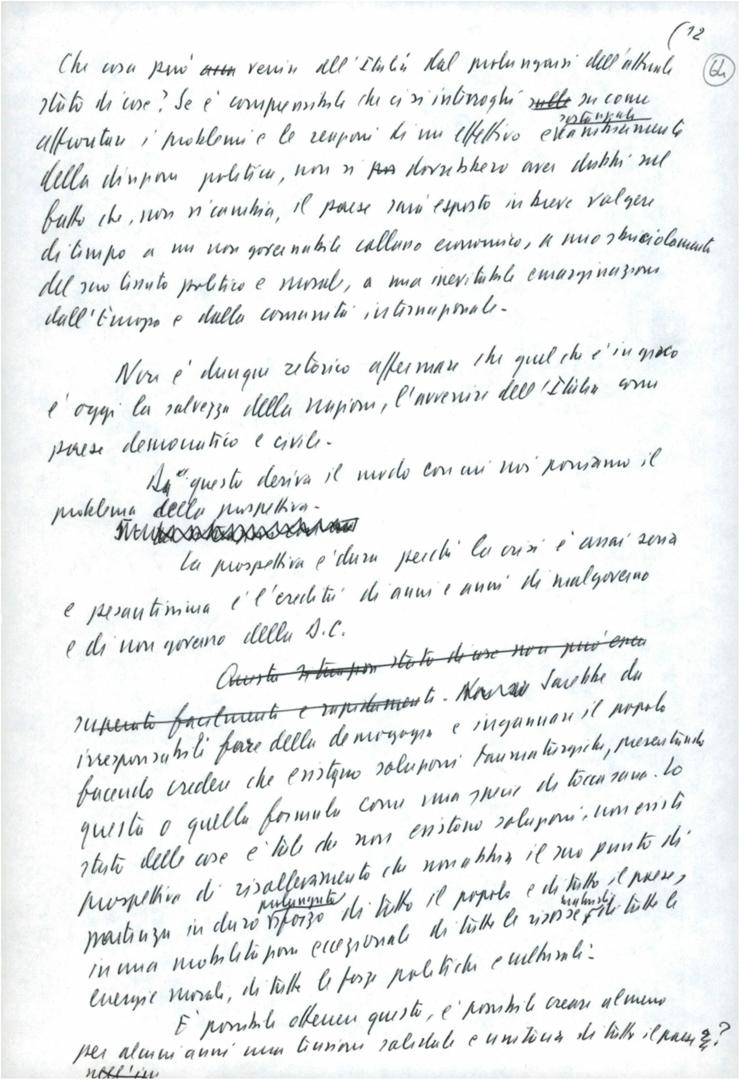 (12
64
Che cosa può venire all'Italia dal prolungarsi dell'attuale
stato di cose? Se è comprensibile che ci si interroghi sulle su come
affrontare i problemi e le ragioni di un effettivo e sostanziale
della disputa politica, non si dovrebbero aver dubbi sul
fatto che, non si cambia, il paese sarà esposto in breve volgere
di tempo a un non governabile collasso economico, a uno sbriciolamento
del suo tessuto politico e morale, a una inevitabile emarginazione
dall'Europa e dalla comunità internazionale.
Non è dunque retorico affermare che quel che è in gioco
è oggi la salvezza della nazione, l'avvenire dell'Italia come
paese democratico e civile.
Da questo deriva il modo con cui noi poniamo il
problema della prospettiva.
La prospettiva è dura perché la crisi è assai seria
e pesantissima è l'eredità di anni e anni di malgoverno
e di non governo della D.C.
Questa situazione stato di cose non può essere
superato facilmente e rapidamente. Sarebbe da
irresponsabili fare della demagogia e ingannare il popolo
facendo credere che esistono soluzioni taumaturgiche, presentando
questa o quella formula come una specie di toccasana. Lo
stato delle cose è tale che non esistono soluzioni, non esiste
prospettiva di risollevamento che non abbia il suo punto di
partenza in duro prolungato sforzo di tutto il popolo e di tutto il paese,
in una mobilitazione eccezionale di tutte le risorse materiali, di tutte le
energie morali, di tutte le forze politiche e culturali.
È possibile ottenere questo, è possibile creare almeno
per alcuni anni una tensione solidale e unitaria di tutto il paese?